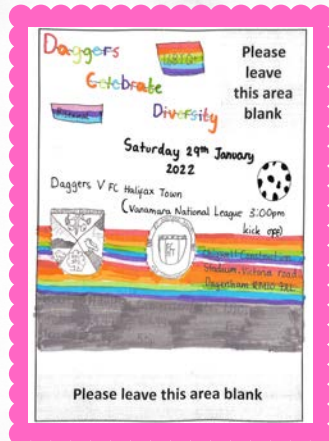 Daggers
Celebrate
Diversity
Please
leave
this area
blank
Saturday 29th January
2022
Daggers V FC Halifax Town
(Vanamara National League 3:00pm
kick off)
Stadium, Victoria road
Dagenham
Please leave this area blank